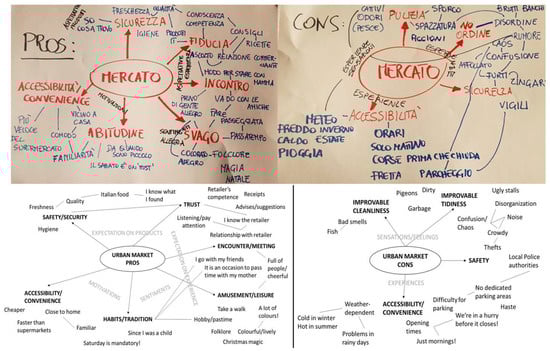 PROS:
SICUREZZA
FRESCHEZZA
QUALITÀ
SO
COSA TROVO
IGIENE
PRODOTTI
IT
FIDUCIA
CONOSCENZA
COMPETENZA
CONSIGLI
RICETTE
ASCOLTO
RELAZIONE
MERCATO
ACCESSIBILITÀ
CONVENIENCE
MOTIVATIONS
INCONTRO
MODO PER STARE CON
MAMMA
VADO CON LE
AMICHE
PIENO
DI GENTE
ALLEGRO
FARE
PASSEGGIATA
PASSATEMPO
SVAGO
COLORATO
ALLEGRO
FOLCLORE
MAGIA
NATALE
PIÙ
VELOCE
DEL
SUPERMERCATO
COMODO
VICINO A
CASA
FAMILIARITÀ
ABITUDINE
DA QUANDO
SONO PICCOLO
CONS:
CATTIVI
ODORI
(PESCE)
PULIZIA
SPORCO
SPAZZATURA
PICCIONI
NO
ORDINE
BRUTTI BANCHI
DISORDINE
RUMORE
CAOS
CONFUSIONE
AFFOLLATO
FURTI
ZINGARI
MERCATO
SICUREZZA
VIGILI
ESPERIENCE
ACCESSIBILITÀ
METEO
FREDDO INVERNO
CALDO ESTATE
PIOGGIA
ORARI
SOLO MATTINO
CORSE PRIMA CHE CHIUDA
FRETTA
PARCHEGGIO
Italian food
I know what
I found
Retailer's
competence
Receipts
Quality
Freshness
TRUST
Advises/suggestions
SAFETY/SECURITY
Listening/pay
attention
I know the retailer
Hygiene
EXPECTATION ON PRODUCTS
Relationship with retailer
EXPECTATION ON EXPERIENCE
ENCOUNTER/MEETING
URBAN MARKET
PROS
I go with my friends
It is an occasion to pass
time with my mother
Full of
people/
cheerful
MOTIVATIONS
SENTIMENTS
ACCESSIBILITY/
CONVENIENCE
AMUSEMENT/LEISURE
Take a walk
A lot of
colours!
Cheaper
Close to home
HABITS/TRADITION
Hobby/pastime
Faster than
supermarkets
Familiar
Folklore
Colourful/lively
Since I was a child
Saturday is mandatory!
Christmas magic
Pigeons
Dirty
Ugly stalls
IMPROVABLE
CLEANLINESS
IMPROVABLE
TIDINESS
Disorganization
Garbage
Noise
Bad smells
Confusion/
Chaos
Crowdy
Fish
SENSATIONS/FEELINGS
Thefts
URBAN MARKET
CONS
SAFETY
Local Police
authorities
EXPERIENCES
No dedicated
parking areas
Weather-
dependent
ACCESSIBILITY/
CONVENIENCE
Difficulty for
parking
Haste
Cold in winter
Hot in summer
Opening
times
We're in a hurry
before it closes!
Problems in
rainy days
Just mornings!